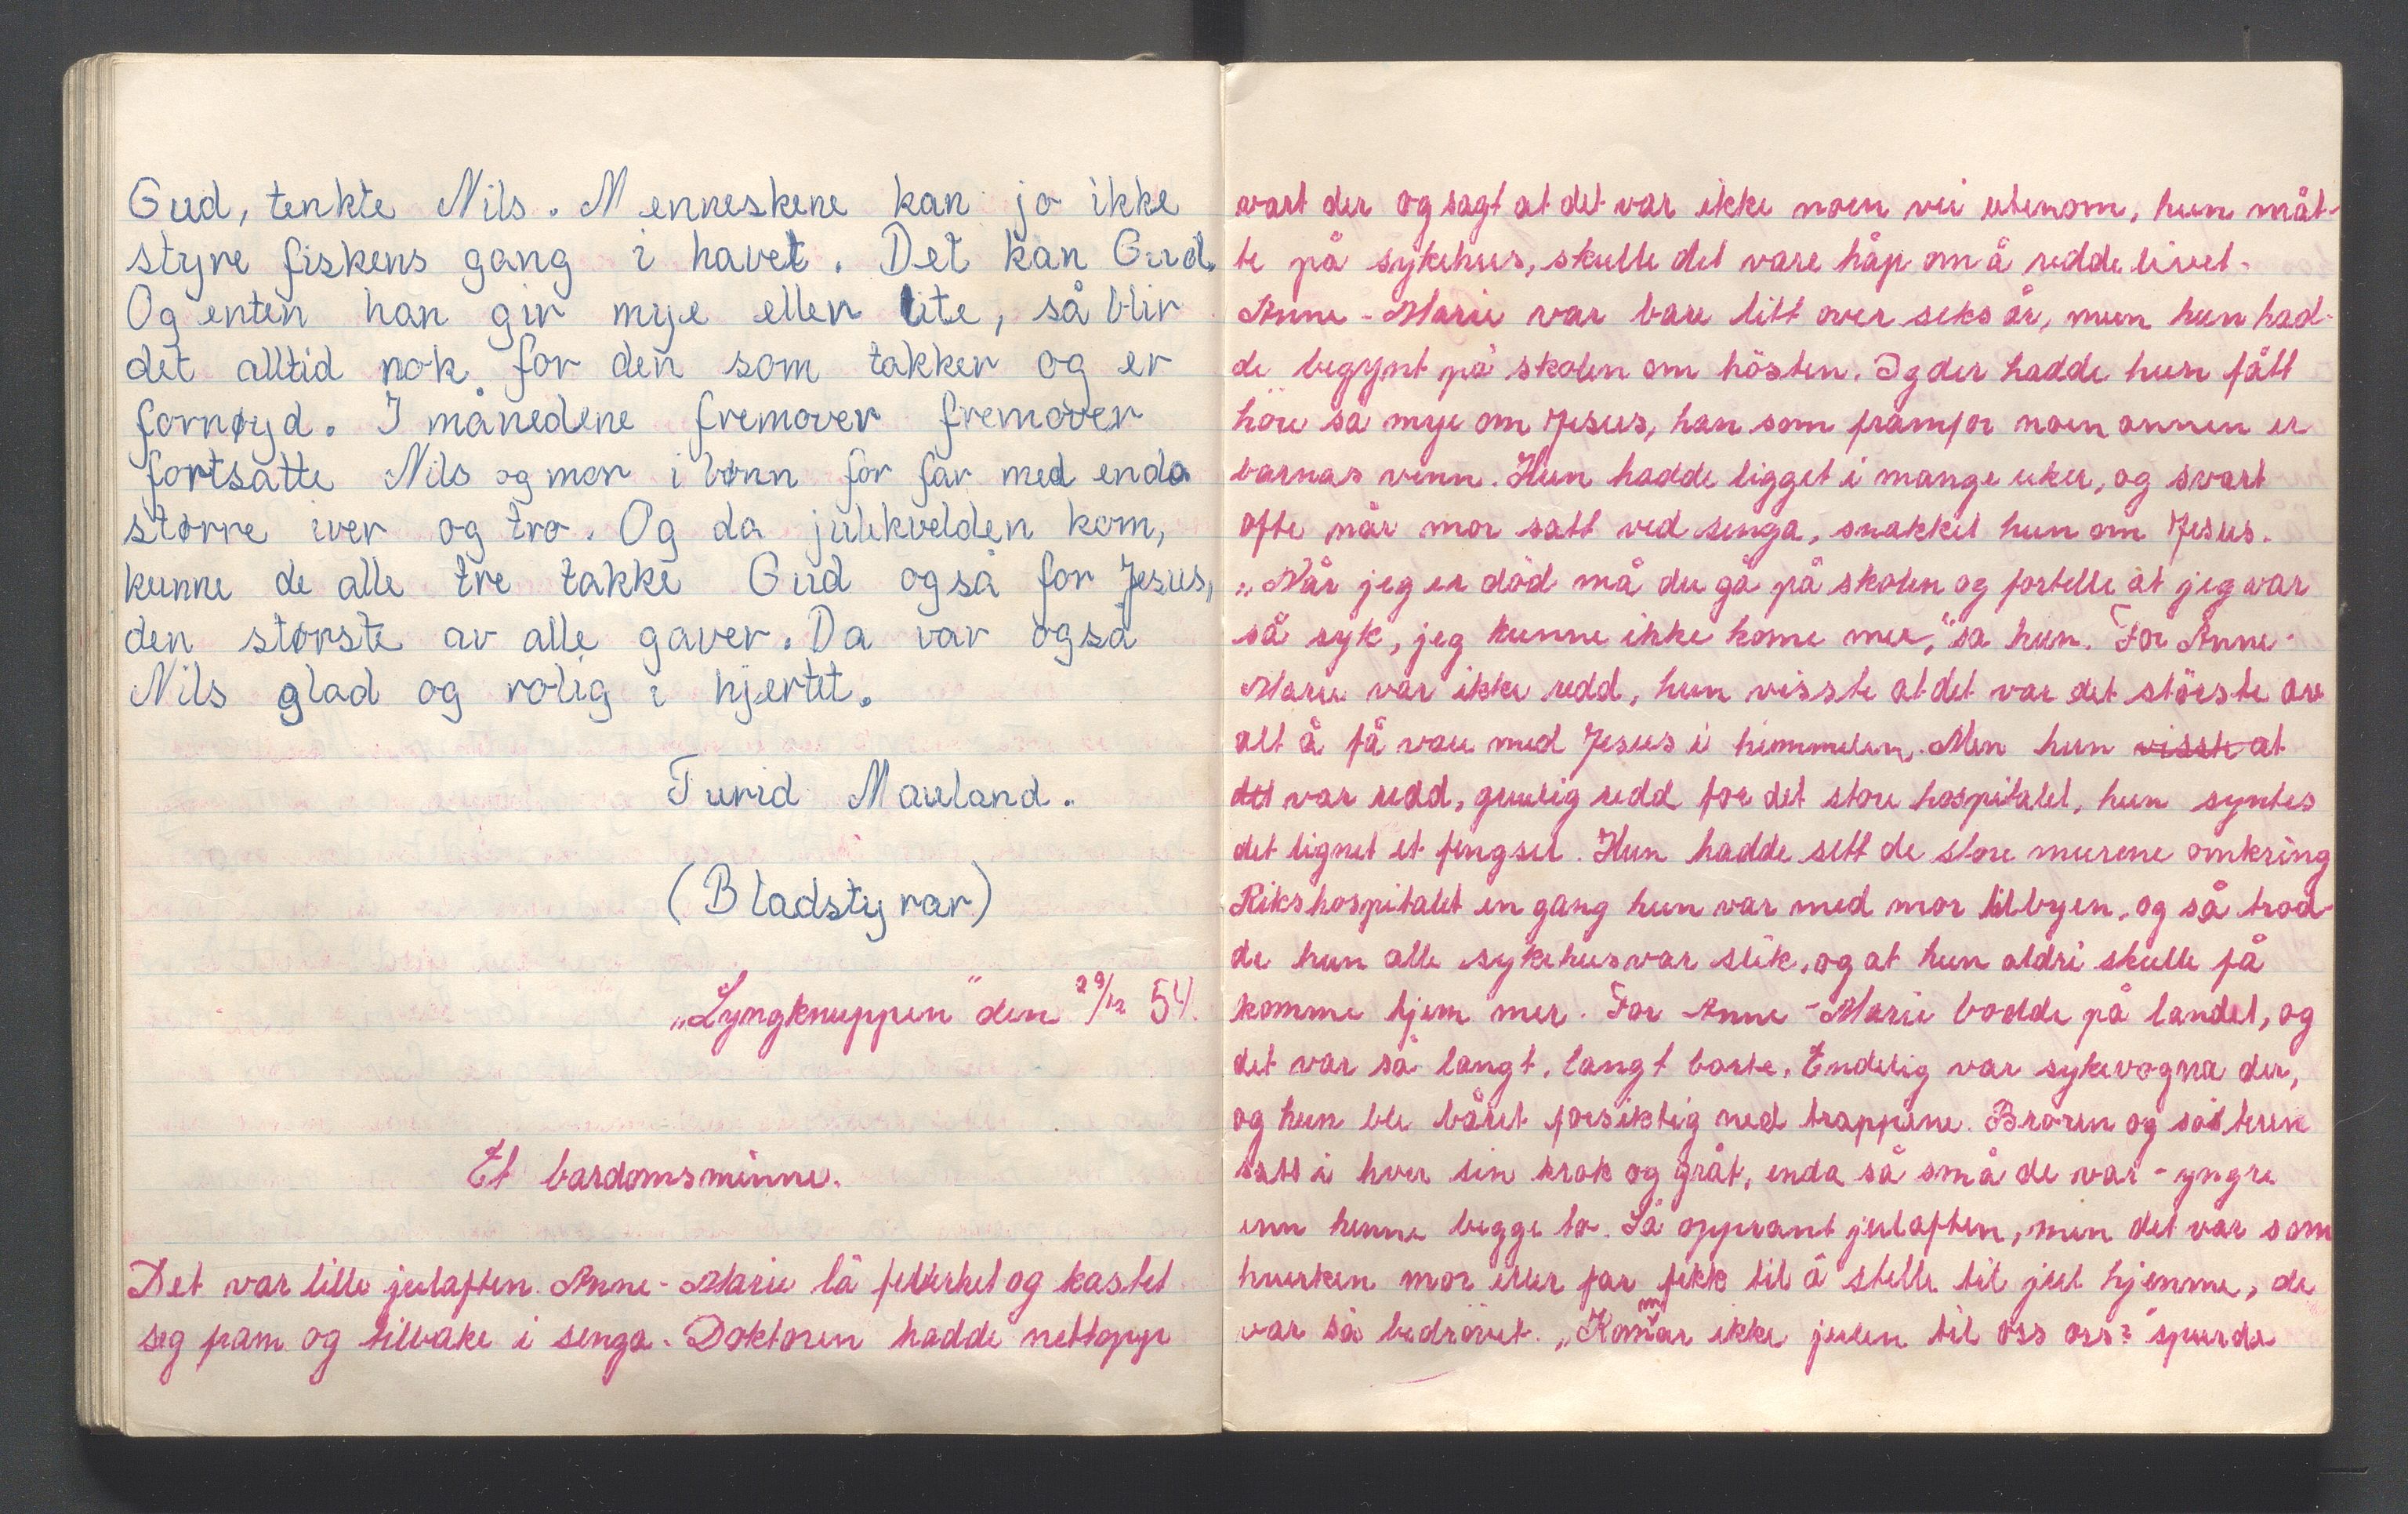 Gud, tenkte Nils. Menneskene kan jo ikke
styre fiskens gang i havet. Det kan Gud.
Og enten han gir mye eller lite, så blir
det alltid nok for den som takker og er
fornøyd. I månedene fremover fremover
fortsatte Nils og mor i bønn for far med enda
større iver og tro. Og da julekvelden kom,
kunne de alle tre takke Gud også for Jesus,
den største av alle gaver. Da var også
Nils glad og rolig i hjertet.
Turid Mauland.
(Bladstyrar)
„Lyngknuppen" den 29/12 54.
Et bardomsminne.
Det var lille julaften. Anne-Marie lå febterket og kastet
seg fram og tilbake i senga. Doktoren hadde nettopp
vart der og sagt at det var ikke noen vei utenom, hun måt-
te på sykehus, skulle det vare håp om å redde livet.
Anne-Marie var bare litt over seks år, men hun had-
de begynt på skolen om hösten. Og der hadde hun fått
höre så mye om Jesus, han som framfor noen annen er
barnas venn. Hun hadde ligget i mange uker, og svart
ofte når mor satt ved senga, snakket hun om Jesus.
„Når jeg er död må du gå på skolen og fortelle at jeg var
så syk, jeg kunne ikke kome mer," sa hun. For Anne-
Marie var ikke redd, hun visste at det var det störste av
alt å få vare med Jesus i himmelen. Men hun visste at
det var redd, gruelig redd for det store hospitalet, hun syntes
det lignet et fengsel. Hun hadde sett de store murene omkring
Rikshospitalet en gang hun var med mor til byen, og så trod-
de hun alle sykehus var slik, og at hun aldri skulle få
komme hjem mer. For Anne-Marie bodde på landet, og
det var så langt, langt borte. Endelig var sykevogna der,
og hun ble båret forsiktig ned trappene. Broren og søsteren
satt i hver sin krok og gråt, enda så små de var - yngre
enn henne begge to. Så opprant julaften, men det var som
hverken mor eller far fekk til å stelle til jul hjemme, de
var så bedrövet. „Kommar ikke julen til oss ors?" spurde